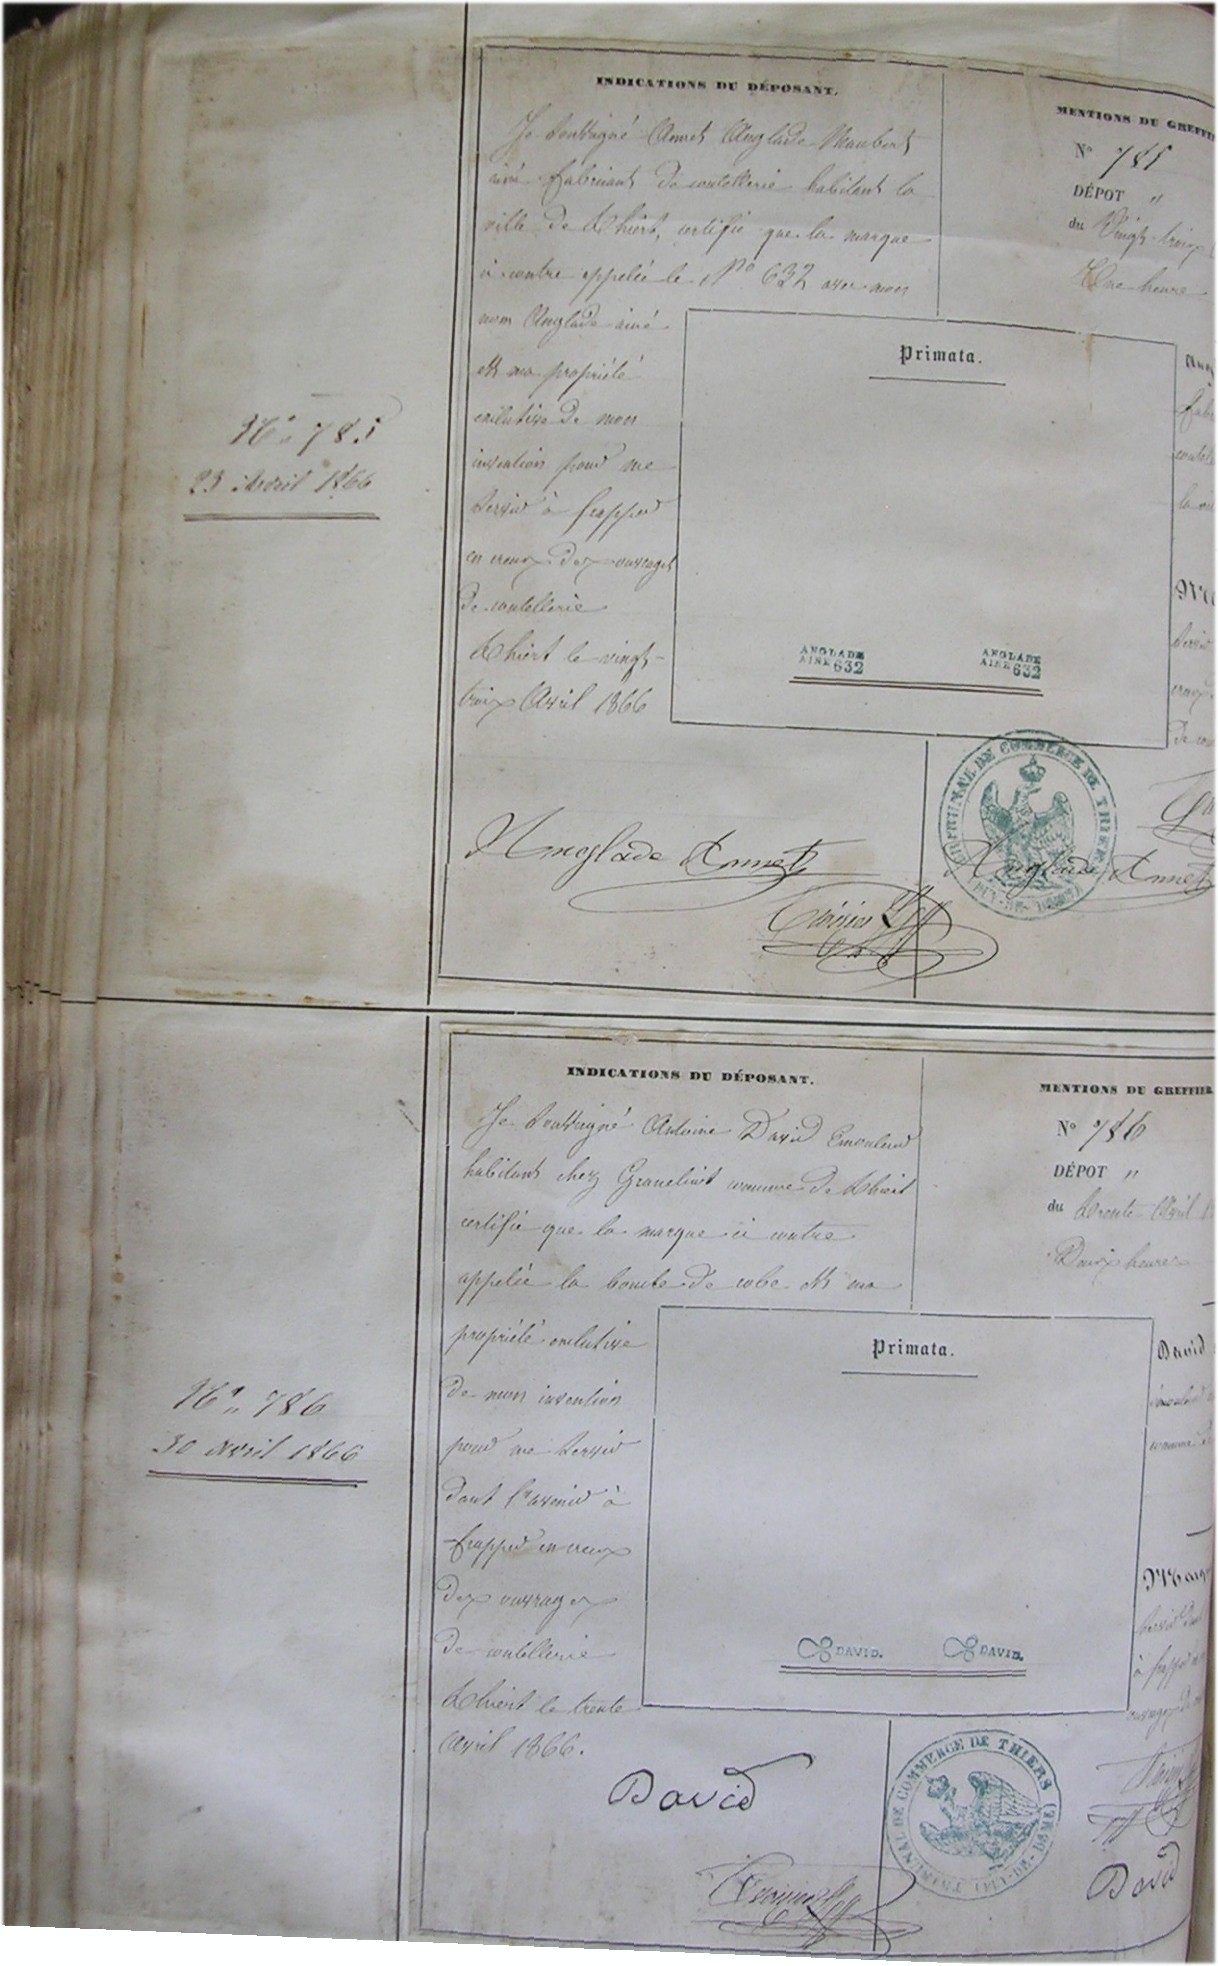 N° 785
23 Avril 1866
INDICATIONS DU DÉPOSANT.
Je soussigné Annet Anglade Maubert
ainé fabricant de coutellerie habitant la
ville de Thiers, certifie que la marque
ci contre appelée le N° 632 avec mon
nom Anglade ainé
est ma propriété
exclusive de mon
invention pour me
servir à frapper
en creux des ouvrages
de coutellerie
Thiers le vingt-
trois Avril 1866
Anglade Annet
MENTIONS DU GREFFIE
N° 785
DÉPOT "
du Vingt-trois
Une heure
Primata.
ANGLADE
AINE 632
ANGLADE
AINE 632
TRIBUNAL DE COMMERCE DE THIERS
(PUY-DE-DÔME)
Anglade Annet
N° 786
30 Avril 1866
INDICATIONS DU DÉPOSANT.
Je soussigné Antoine David Emouleur
habitant chez Gravelinet commune de Thiers
certifie que la marque ci contre
appelée la boucle de robe est ma
propriété exclusive
de mon invention
pour me servir
dans l'avenir à
frapper en creux
des ouvrages
de coutellerie
Thiers le trente
Avril 1866.
David
MENTIONS DU GREFFIER
N° 786
DÉPOT "
du Trente Avril
Deux heures
Primata.
DAVID.
DAVID.
David
TRIBUNAL DE COMMERCE DE THIERS
(PUY-DE-DÔME)
David